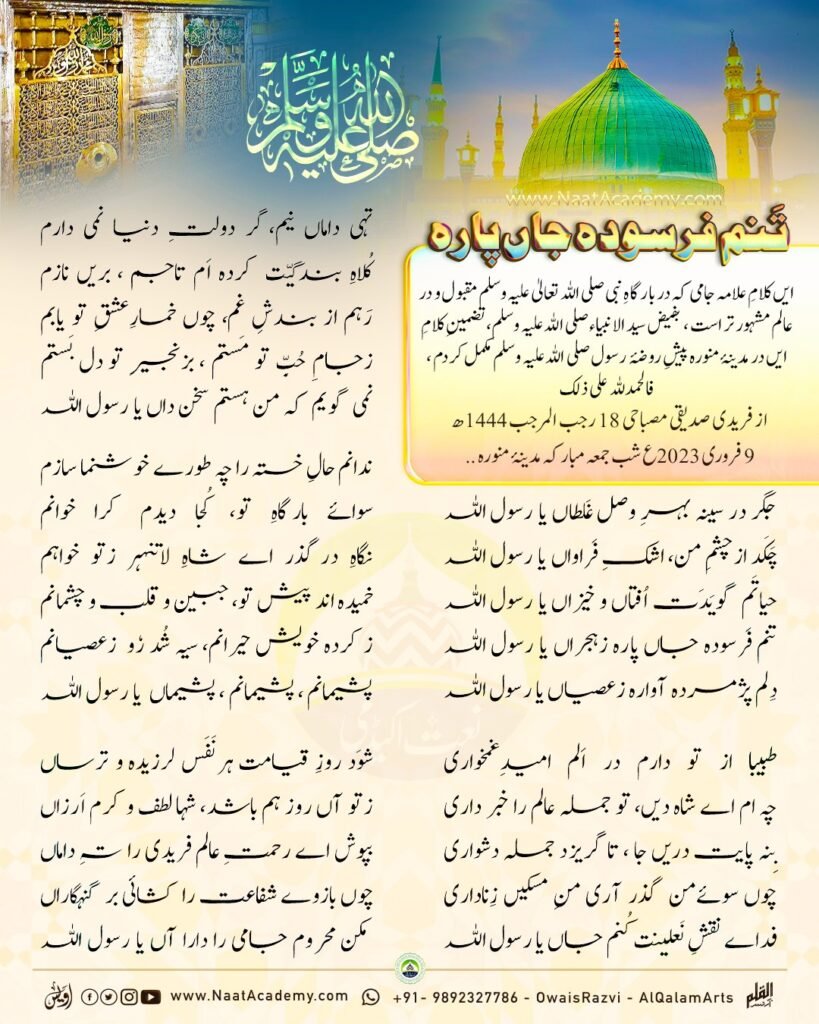 صلی اللہ علیہ وسلم
www.NaatAcademy.com
تَنم فرسودہ جاں پارہ
ایں کلامِ علامہ جامی کہ در بارگاہِ نبی صلی اللہ تعالیٰ علیہ وسلم مقبول و در
عالم مشہور تر است، بفیض سید الانبیاء صلی اللہ علیہ وسلم، تضمینِ کلامِ
ایں در مدینۂ منورہ پیشِ روضۂ رسول صلی اللہ علیہ وسلم مکمل کردم،
فالحمدللہ علی ذلک
از فریدی صدیقی مصباحی 18 رجب المرجب 1444ھ
9 فروری 2023ع شب جمعہ مبارکہ مدینۂ منورہ ..
جگر در سینہ بہرِ وصل غَلطاں یا رسول اللہ
چکَد از چشمِ من، اشکِ فَراواں یا رسول اللہ
حیاتَم گویدَت اُفتاں و خیزاں یا رسول اللہ
تنم فَرسودہ جاں پارہ زہجراں یا رسول اللہ
دِلم پژمردہ آوارہ زعصیاں یا رسول اللہ
طبیبا از تو دارم در اَلم امیدِ غمخواری
چہ ام اے شاہ دیں، تو جملہ عالم را خبر داری
بِنہ پایت دریں جا، تا گریزد جملہ دشواری
چوں سوئے من گذر آری منِ مسکیں زِناداری
فدائے نقشِ نَعلینت کُنم جاں یا رسول اللہ
تہی داماں نیم، گر دولتِ دنیا نمی دارم
کُلاہِ بندگیّت کردہ اَم تاجم ، بریں نازم
رَہم از بندشِ غم، چوں خمارِ عشقِ تو یابم
زجامِ حُبّ تو مستم ، بزنجیر تو دل بَستم
نمی گویم کہ من ہستم سخن داں یا رسول اللہ
ندانم حالِ خستہ را چہ طورے خوشنما سازم
سوائے بارگاہِ تو، کُجا دیدم کرا خوانم
نگاہِ در گذر اے شاہِ لاتنہر ز تو خواہم
خمیدہ اند پیش تو، جبین و قلب و چشمانم
ز کردہ خویش حیرانم، سیہ شُد رُو زعصیانم
پشیمانم ، پشیمانم ، پشیماں یا رسول اللہ
شوَد روزِ قیامت ہر نَفَس لرزیدہ و ترساں
ز تو آں روز ہم باشد، شہا لطف و کرم اَرزاں
بپوش اے رحمتِ عالم فریدی را تہِ داماں
چوں بازوے شفاعت را کشائی بر گنہگاراں
مکن محروم جامی را دارا آں یا رسول اللہ
نعت اکیڈمی
اویس
www.NaatAcademy.com
+91- 9892327786 - OwaisRazvi - AlQalamArts
القلم